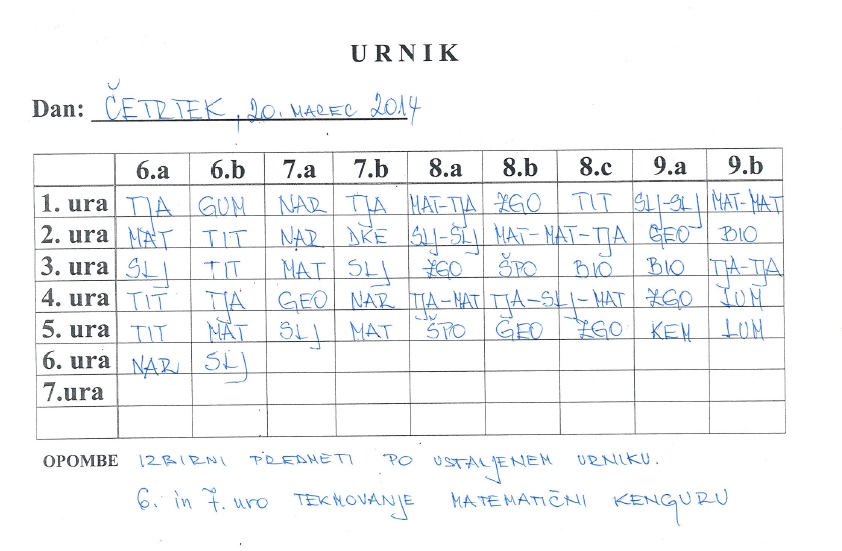 URNIK
Dan: ČETRTEK, 20. MAREC 2014
6.a 6.b 7.a 7.b 8.a 8.b 8.c 9.a 9.b
1. ura TJA GUM NAR TJA MAT-TJA ZGO TIT SLJ-SLJ MAT-MAT
2. ura MAT TIT NAR DKE SLJ-SLJ MAT-MAT-TJA GEO BIO
3. ura SLJ TIT MAT SLJ ZGO ŠPO BIO BIO TJA-TJA
4. ura TIT TJA GEO NAR TJA-MAT TJA-SLJ-MAT ZGO LUM
5. ura TIT MAT SLJ MAT ŠPO GEO ZGO KEM LUM
6. ura NAR SLJ
7.ura
OPOMBE IZBIRNI PREDMETI PO USTALJENEM URNIKU.
6. in 7. uro TEKMOVANJE MATEMATIČNI KENGURU